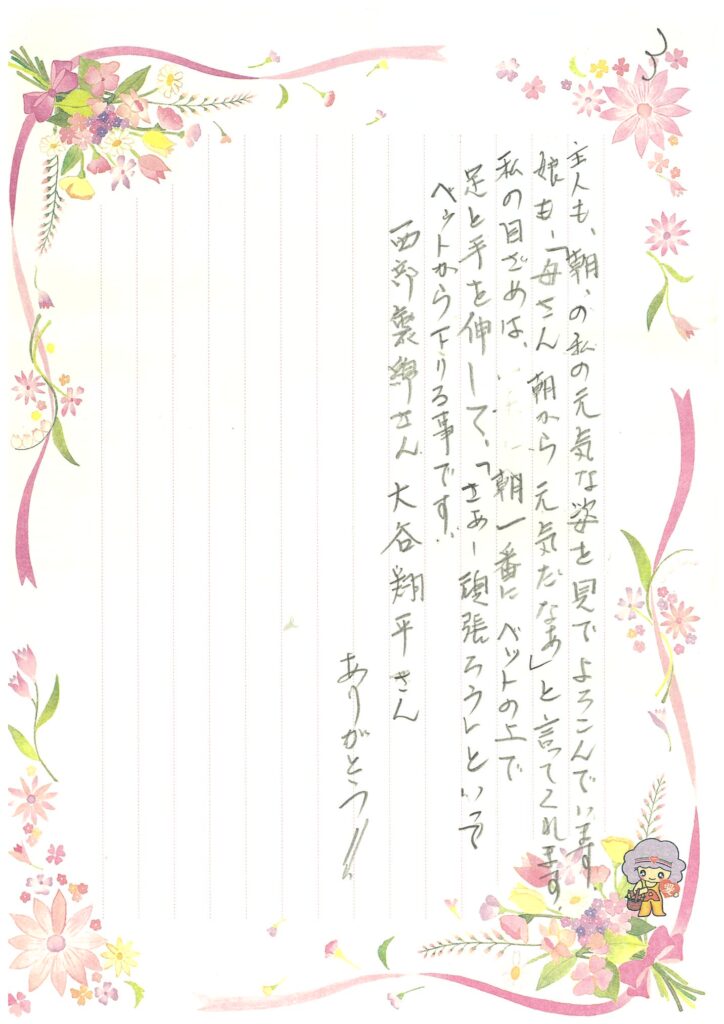 3
主人も、朝、の私の元気な姿を見でよろこんでいます
娘も、「母さん 朝から 元気だなあ」と言ってくれます。
私の目ざめは、朝一番に ベットの上で
足と手を伸して、「さぁー頑張ろう」といって
ベットから下りる事です。
西部製綿さん 大谷翔平さん
ありがとう!!